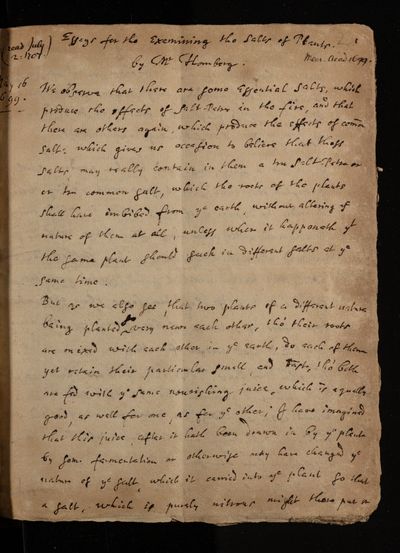 read July)
2. 1701
Essays for the Examining the Salts of Plants.
by Mr Homberg.
Mem. Acad.
May 16
We observe that there are some Essential Salts, which
produce the effects of Salt-Petre in the fire, and that
there are others again, which produce the effects of com̄on
Salt: which gives us occasion to believe that these
salts may really contain in them a true Salt-Petre or
or true common salt, which the roots of the plants
shall have imbibed from ye earth, without altering ye
nature of them at all, unless when it happeneth yt
the same plant should suck in different salts at ye
same time.
But as we also see, that two plants of a different nature
being planted very near each other, tho' their roots
are mixed with each other in ye earth, do each of them
yet retain their particular smell, and taste, tho both
are fed with ye same nourishing juice, which is equally
good as well for one, as for ye other; I have imagined
that this juice, after it hath been drawn in by ye plants
by some fermentation or otherwise may have changed ye
nature of ye salt, which it carried into ye plant so that
a salt, which is purely nitrous might there put